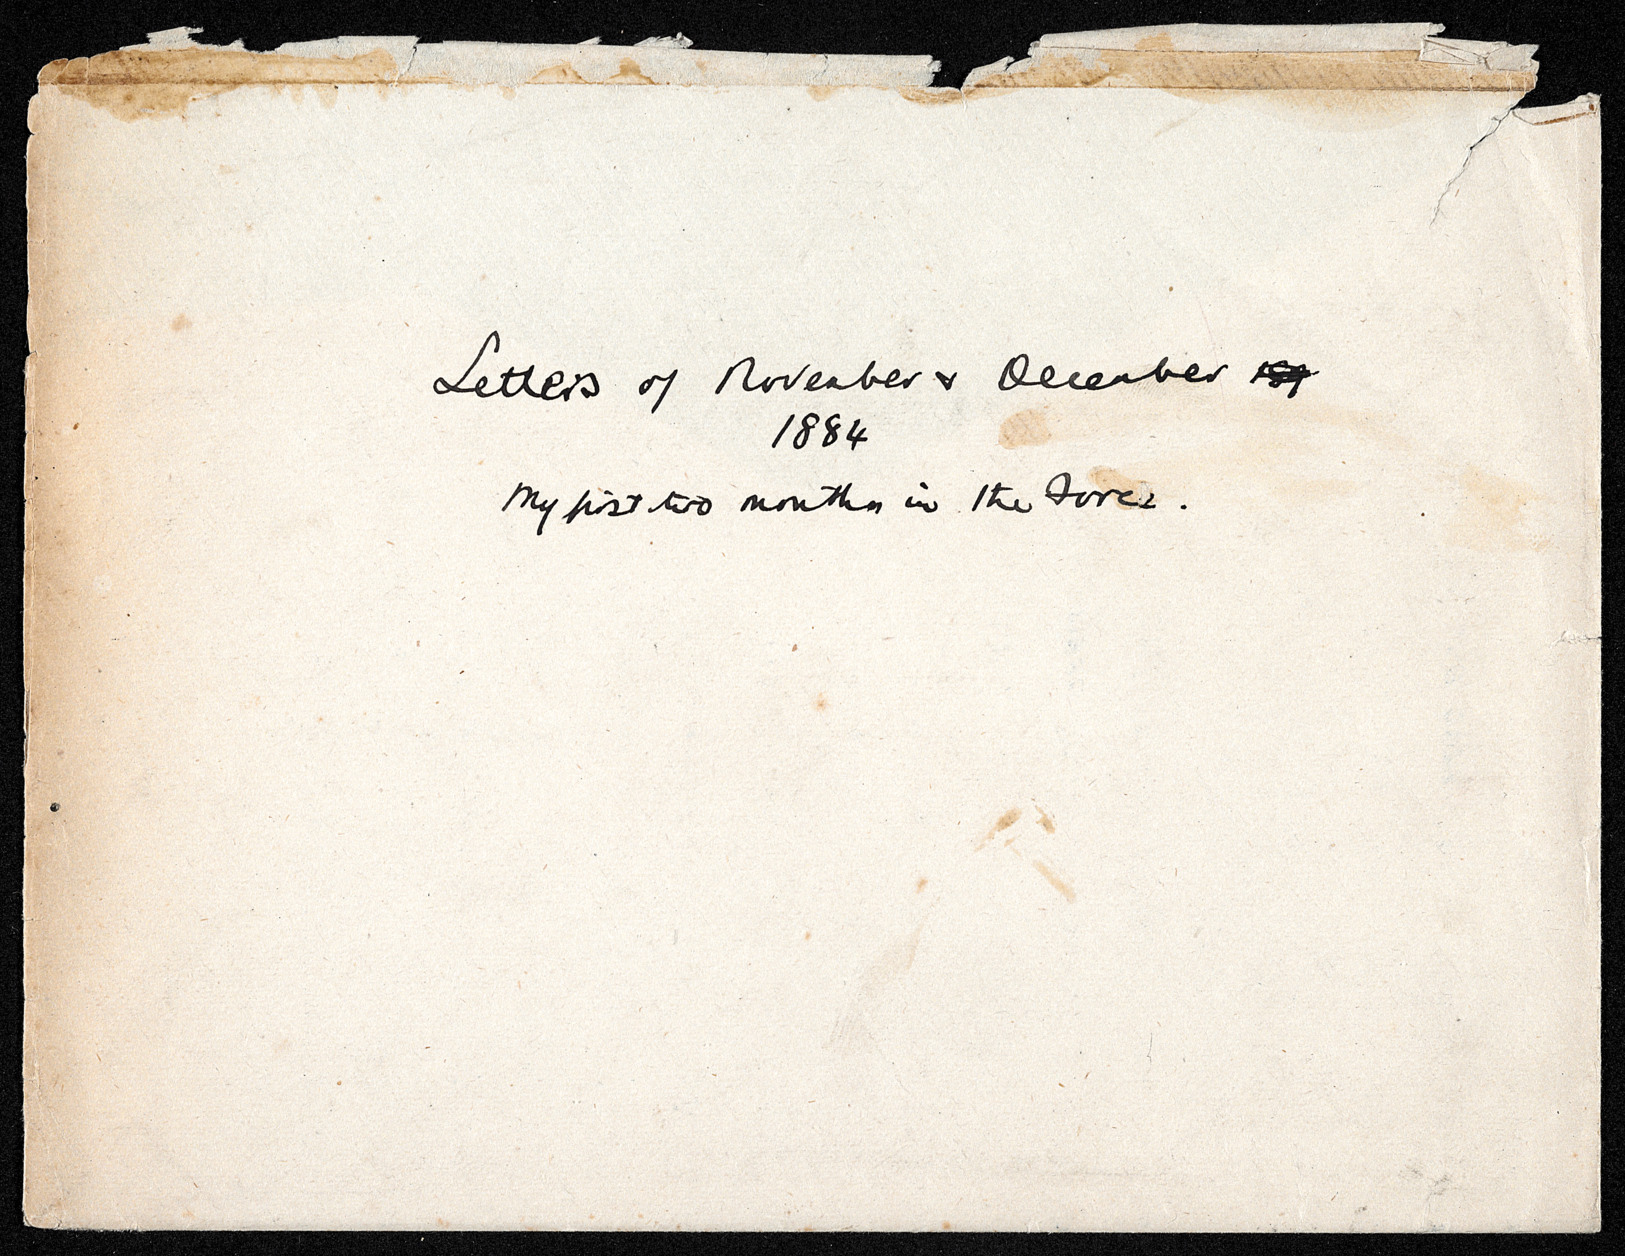 Letters of November & December
1884
My first two months in the Force.